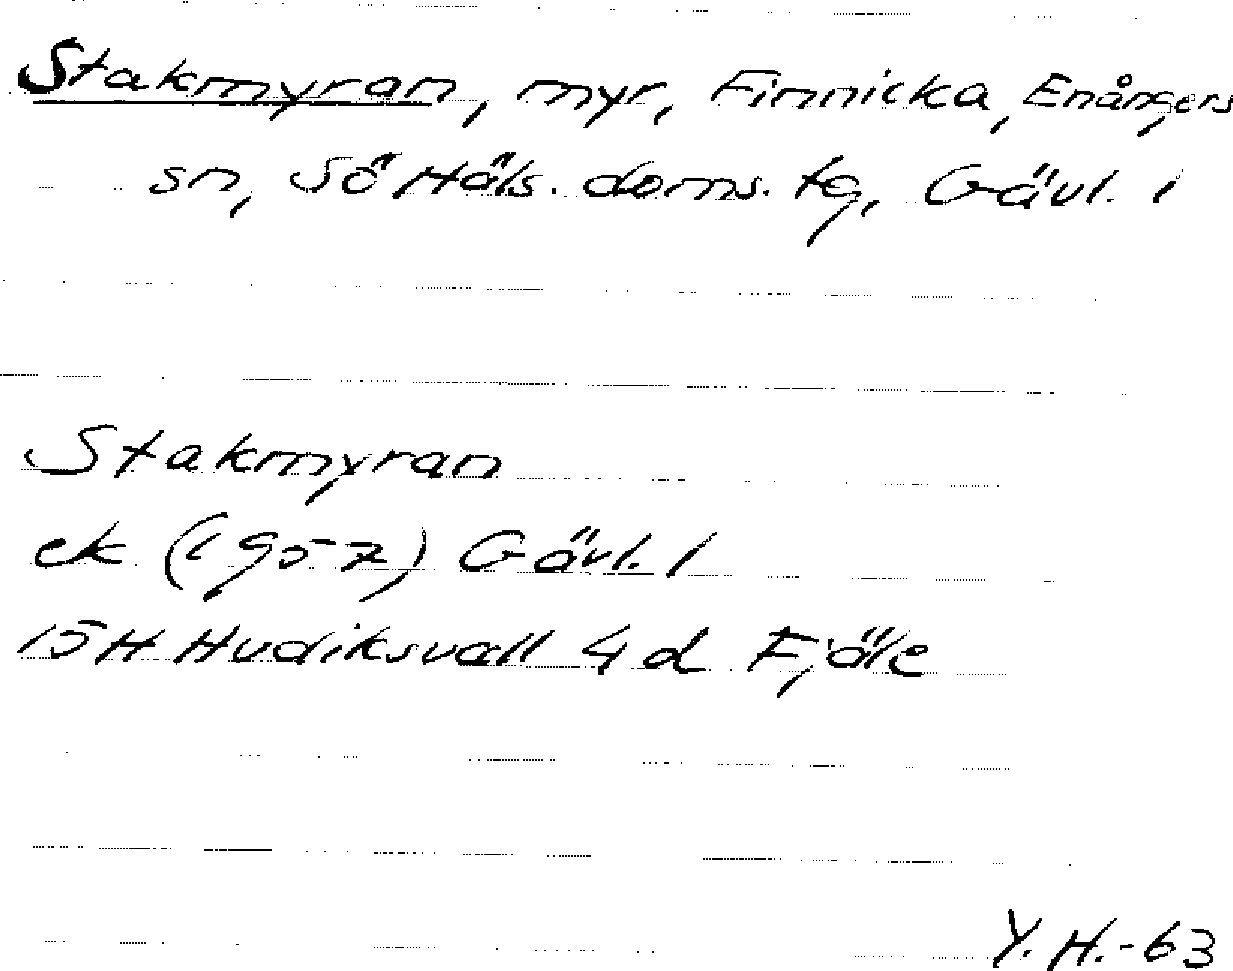 Stakmyran, myr, Finnicka, Enångers
sn, Sö Häls. doms. tg, Gävl. l
Stakmyran
ek (1957) Gävl. l
15H Hudiksvall 4 d Fjäle
Y. H. - 63